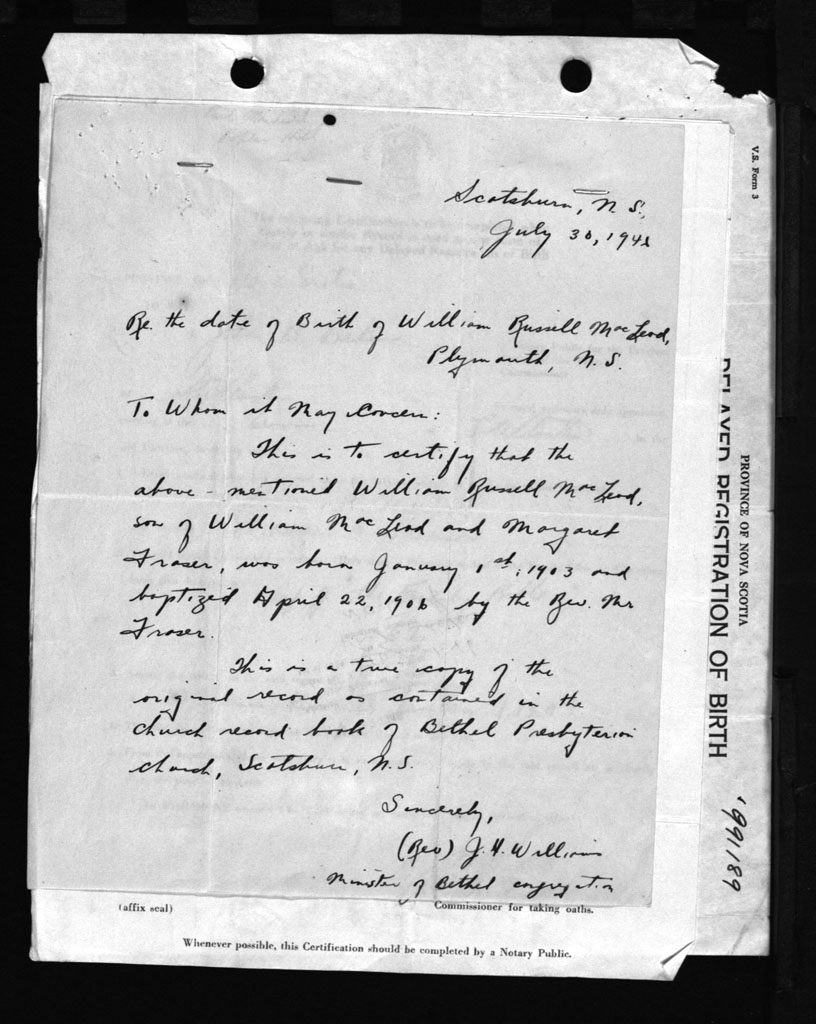 Scotsburn, N.S.,
July 30, 1941
Re. the date of Birth of William Russell MacLeod,
Plymouth, N.S.
To Whom it May Concern:
This is to certify that the
above-mentioned William Russell MacLeod,
son of William MacLeod and Margaret
Fraser, was born January 1st, 1903 and
baptized April 22, 1906 by the Rev. Mr
Fraser.
This is a true copy of the
original record as contained in the
church record book of Bethel Presbyterian
church, Scotsburn, N.S.
Sincerely,
(Rev) J. H. Williams
Minister of Bethel congregation
(affix seal)
Commissioner for taking oaths.
Whenever possible, this Certification should be completed by a Notary Public.
V.S. Form 3
PROVINCE OF NOVA SCOTIA
DELAYED REGISTRATION OF BIRTH
'991189